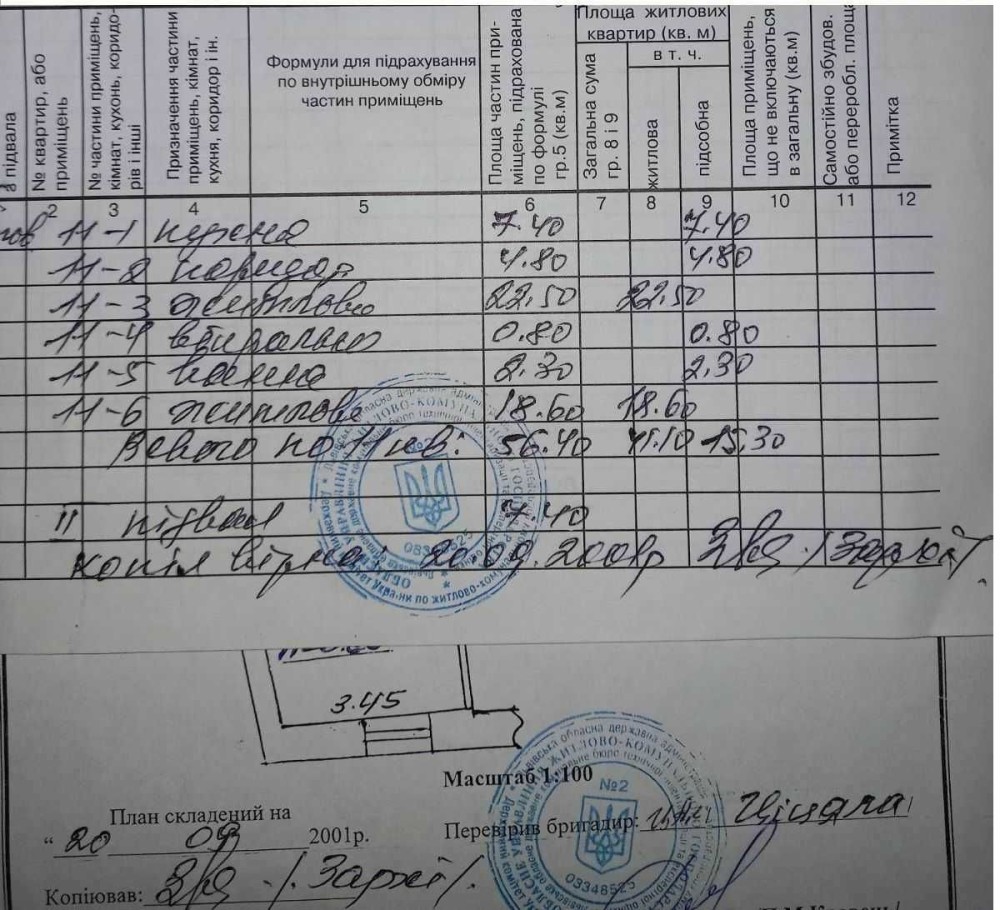 а підвала
№ квартир, або приміщень
№ частини приміщень, кімнат, кухонь, коридо- рів і інші
Призначення частини приміщень, кімнат, кухня, коридор і ін.
Формули для підрахування по внутрішньому обміру частин приміщень
Площа частин при- міщень, підрахована по формулі гр.5 (кв.м)
Площа житлових квартир (кв. м)
в т. ч.
Загальна сума гр. 8 і 9
житлова
підсобна
Площа приміщень, що не включаються в загальну (кв.м)
Самостійно збудов. або переробл. площа
Примітка
2 3 4 5 6 7 8 9 10 11 12
11-1 кухня 7.40 7.40
11-2 коридор 4.80 4.80
11-3 житлова 22.50 22.50
11-4 вбиральня 0.80 0.80
11-5 ванна 2.30 2.30
11-6 житлова 18.60 18.60
Всього по 11 кв: 56.40 41.10 15.30
II підвал 7.40
копія вірна: 20.09.2001р
3.45
Масштаб 1:100
План складений на
“ 20 09 2001р.
Перевірив бригадир:
Копіював:
№2
03348525